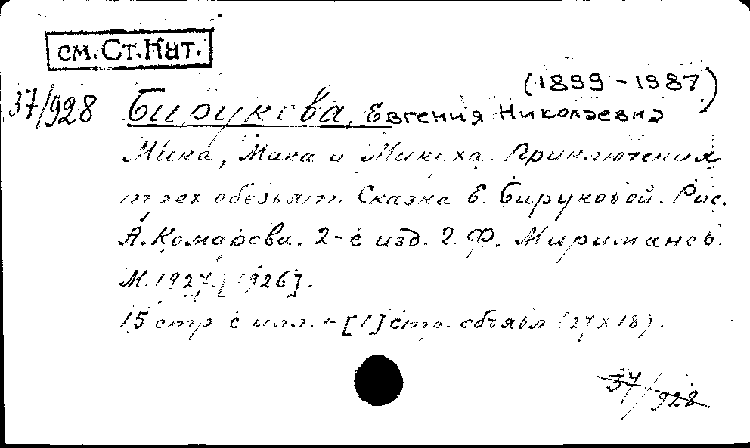 см. Ст. Кат.
(1899-1987)
37/928 Бирукова, Евгения Николаевна
Мика, Мака и Микуха. Приключения
трех обезьян. Сказка Е. Бируковой. Рис.
А. Комарова. 2-е изд. Г. Ф. Мириманов.
М. 1927. [1926].
15 стр с илл. + [1] стр. объявл (27х18).
37/928